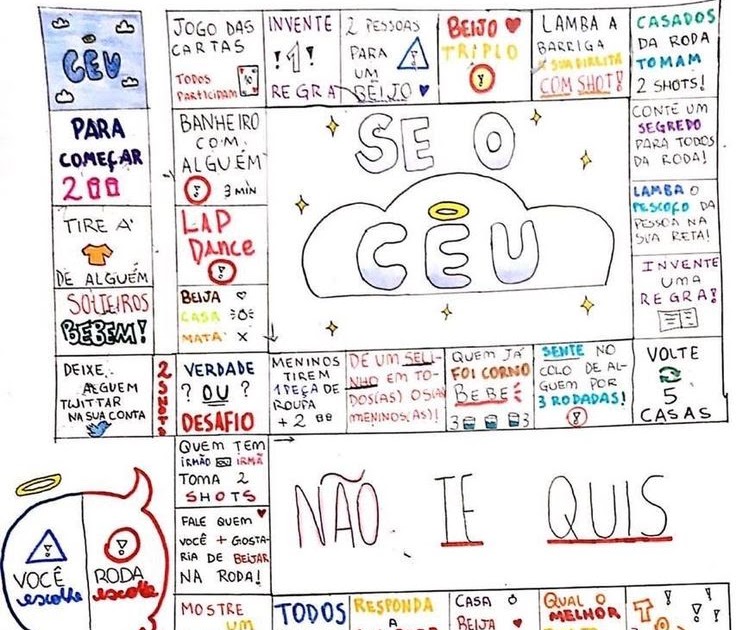 CÉU
JOGO DAS
CARTAS
TODOS
PARTICIPAM
INVENTE
!1!
REGRA
2 PESSOAS
PARA
UM
BEIJO
BEIJO
TRIPLO
LAMBA A
BARRIGA
SUA DIREITA
COM SHOT!
CASADOS
DA RODA
TOMAM
2 SHOTS!
PARA
COMEÇAR
2
BANHEIRO
COM
ALGUÉM
3 MIN
SE O
CÉU
CONTE UM
SEGREDO
PARA TODOS
DA RODA!
TIRE A
DE ALGUÉM
LAP
DANCE
LAMBA O
PESCOÇO DA
PESSOA NA
SUA RETA!
SOLTEIROS
BEBEM!
BEIJA
CASA
MATA X
INVENTE
UMA
REGRA!
DEIXE
ALGUEM
TWITTAR
NA SUA CONTA
2
SHOTS
VERDADE
? OU ?
DESAFIO
MENINOS
TIREM
1 PEÇA DE
ROUPA
+ 2
DE UM SELI-
NHO EM TO-
DOS(AS) OS(AS)
MENINOS(AS)!
QUEM JÁ
FOI CORNO
BEBE
SENTE NO
COLO DE AL-
GUEM POR
3 RODADAS!
VOLTE
5
CASAS
QUEM TEM
IRMÃO OU IRMÃ
TOMA 2
SHOTS
NÃO TE QUIS
FALE QUEM
VOCÊ + GOSTA-
RIA DE BEIJAR
NA RODA!
VOCÊ
escolhe
RODA
escolhe
MOSTRE
UM
TODOS
RESPONDA
A
CASA
BEIJA
QUAL O
MELHOR